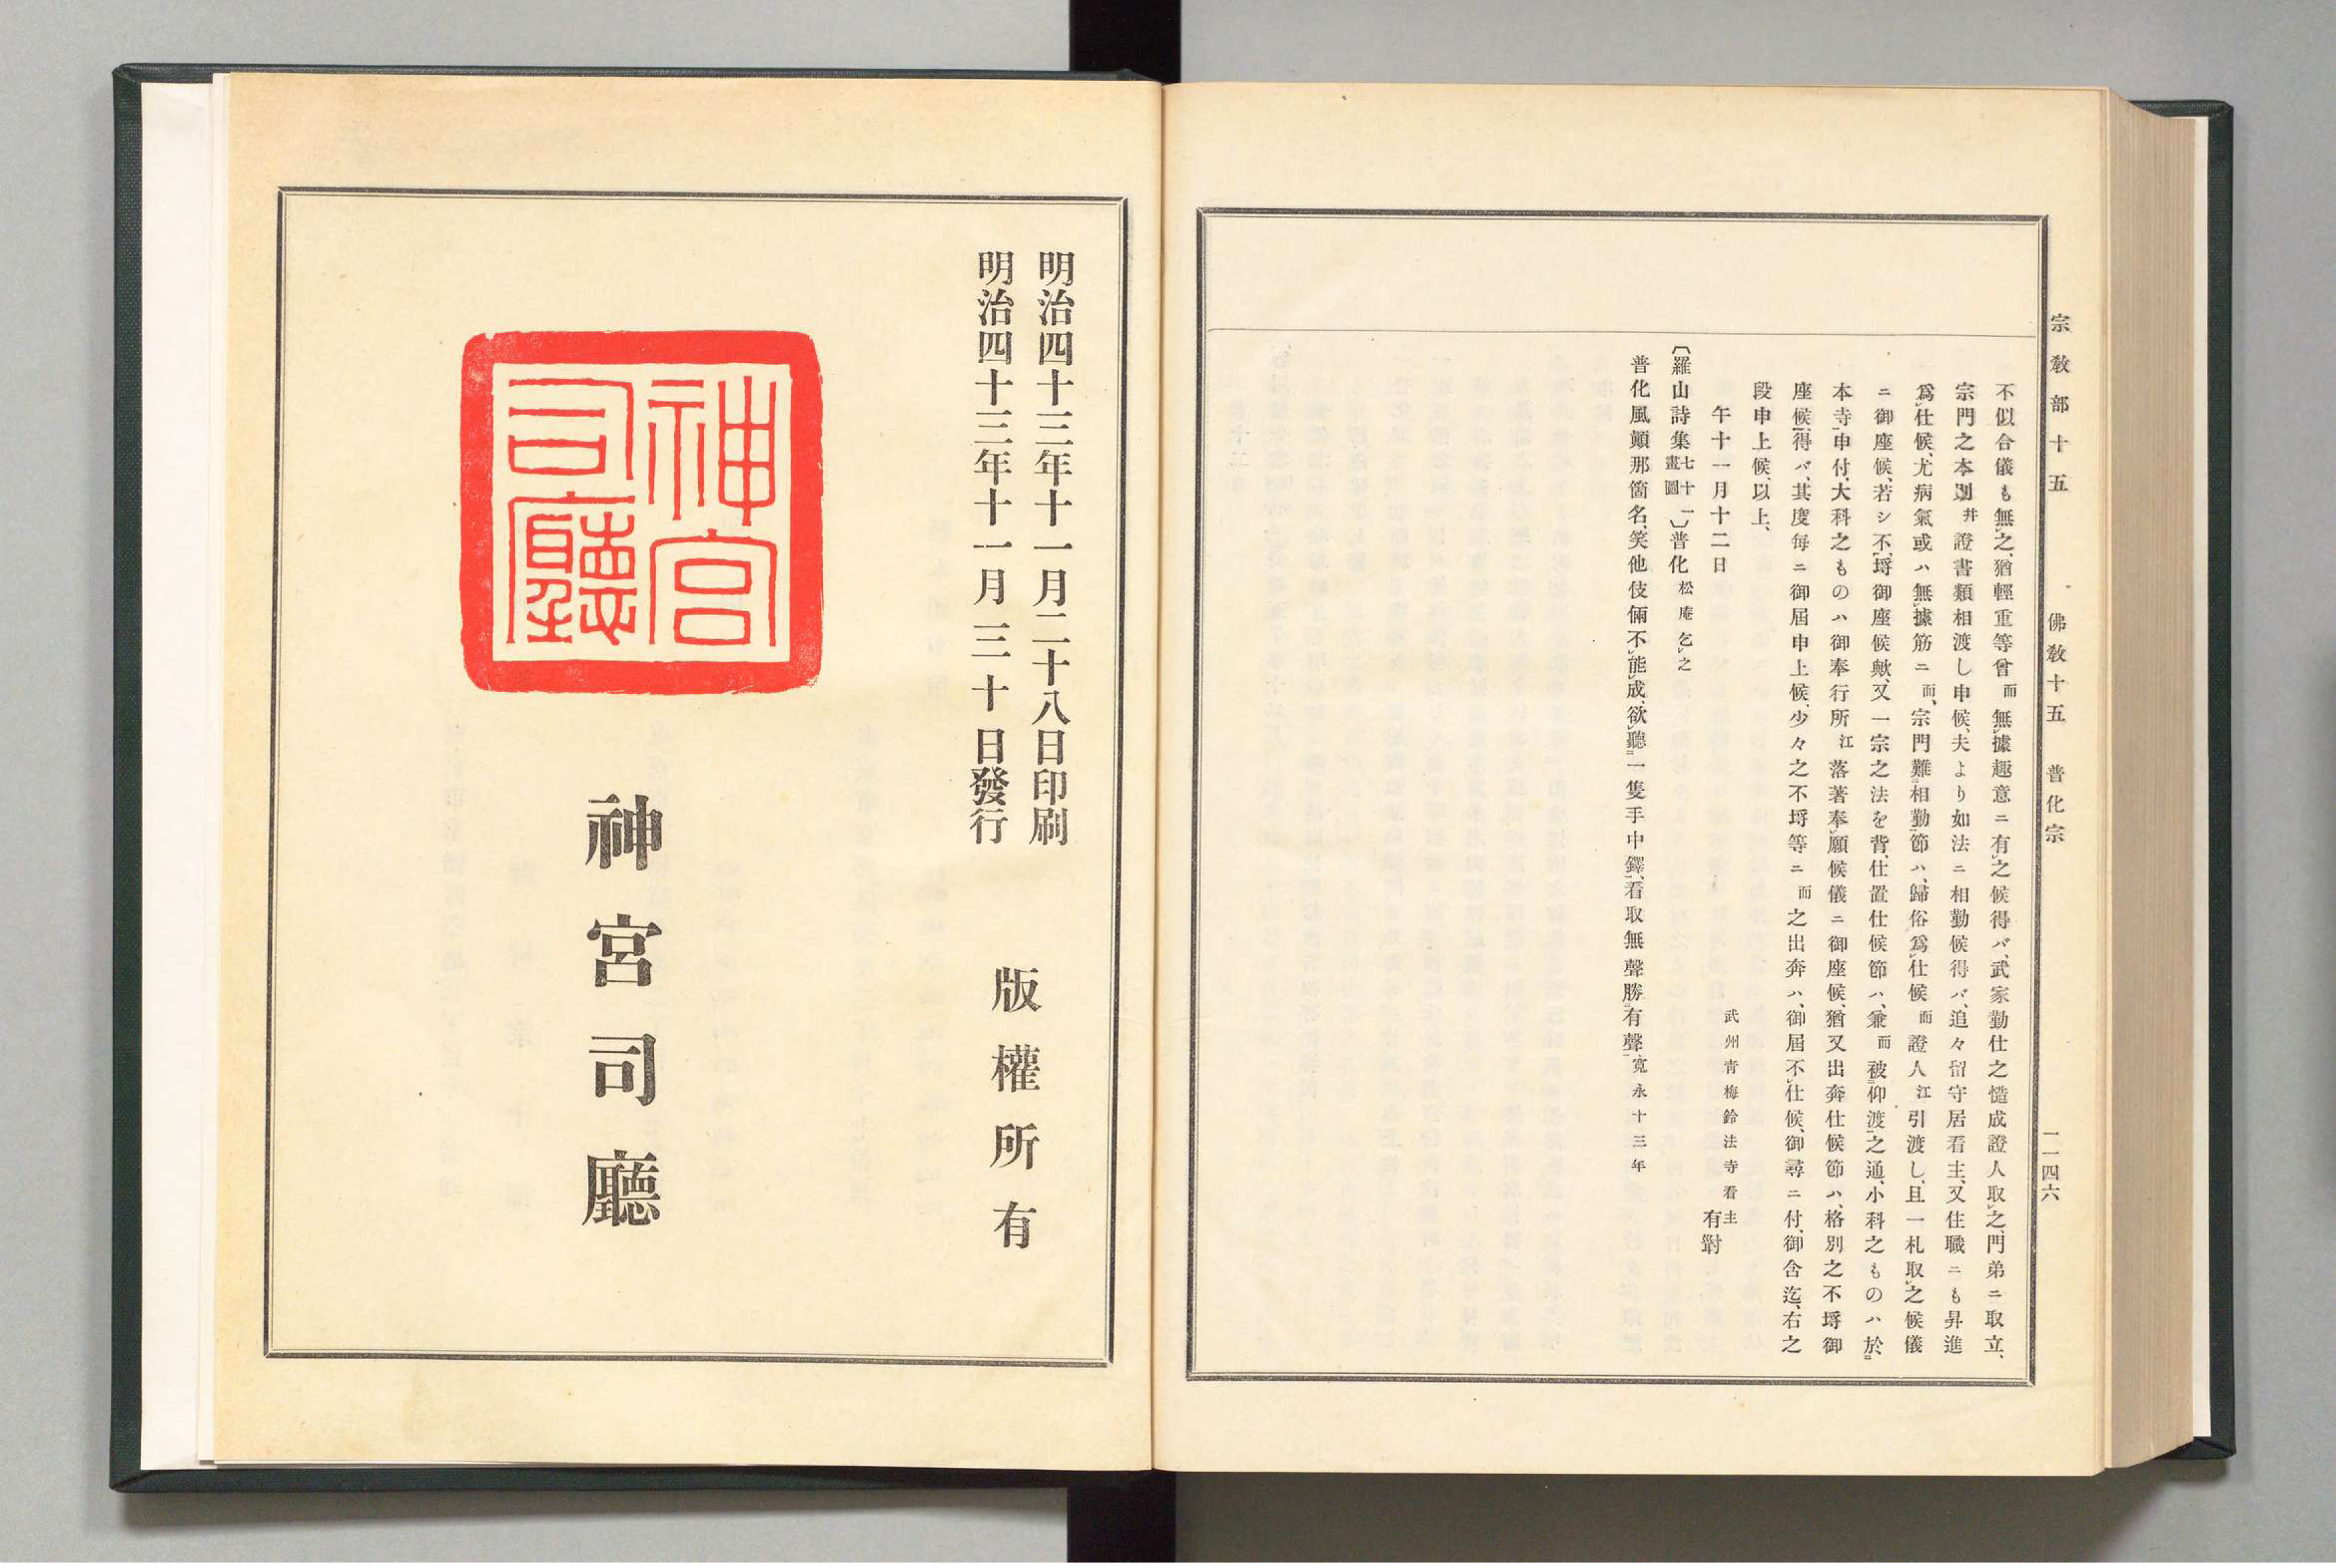 宗敎部十五　佛敎十五　普化宗　一一四六
不似合儀も無レ之、猶輕重等曾而無レ據趣意ニ有レ之候得バ、武家勤仕之慥成證人取レ之、門弟ニ取立、
宗門之本別幷證書類相渡し申候、夫より如法ニ相勤候得バ、追々留守居看主、又住職ニも昇進
爲レ仕候、尤病氣或ハ無レ據筋ニ而、宗門難二相勤一節ハ、歸俗爲レ仕候而證人江引渡し、且一札取レ之候儀
ニ御座候、若シ不レ埒御座候歟、又一宗之法を背、仕置仕候節ハ、兼而被二仰渡一之通、小科之ものハ於二
本寺一申付、大科之ものハ御奉行所江落著奉レ願候儀ニ御座候、猶又出奔仕候節ハ、格別之不埒御
座候得バ、其度每ニ御屆申上候、少々之不埒等ニ而之出奔ハ、御屆不レ仕候、御尋ニ付、御含迄、右之
段申上候、以上、
午十一月十二日　武州靑梅鈴法寺看主　有對
〔羅山詩集七十一畫圖〕普化松庵乞レ之
普化風顚那箇名、笑他伎倆不レ能レ成、欲レ聽二一隻手中鐸一、看取無聲勝二有聲一、寬永十三年
明治四十三年十一月二十八日印刷
明治四十三年十一月三十日發行
版權所有
神宮司廳
神宮司廳